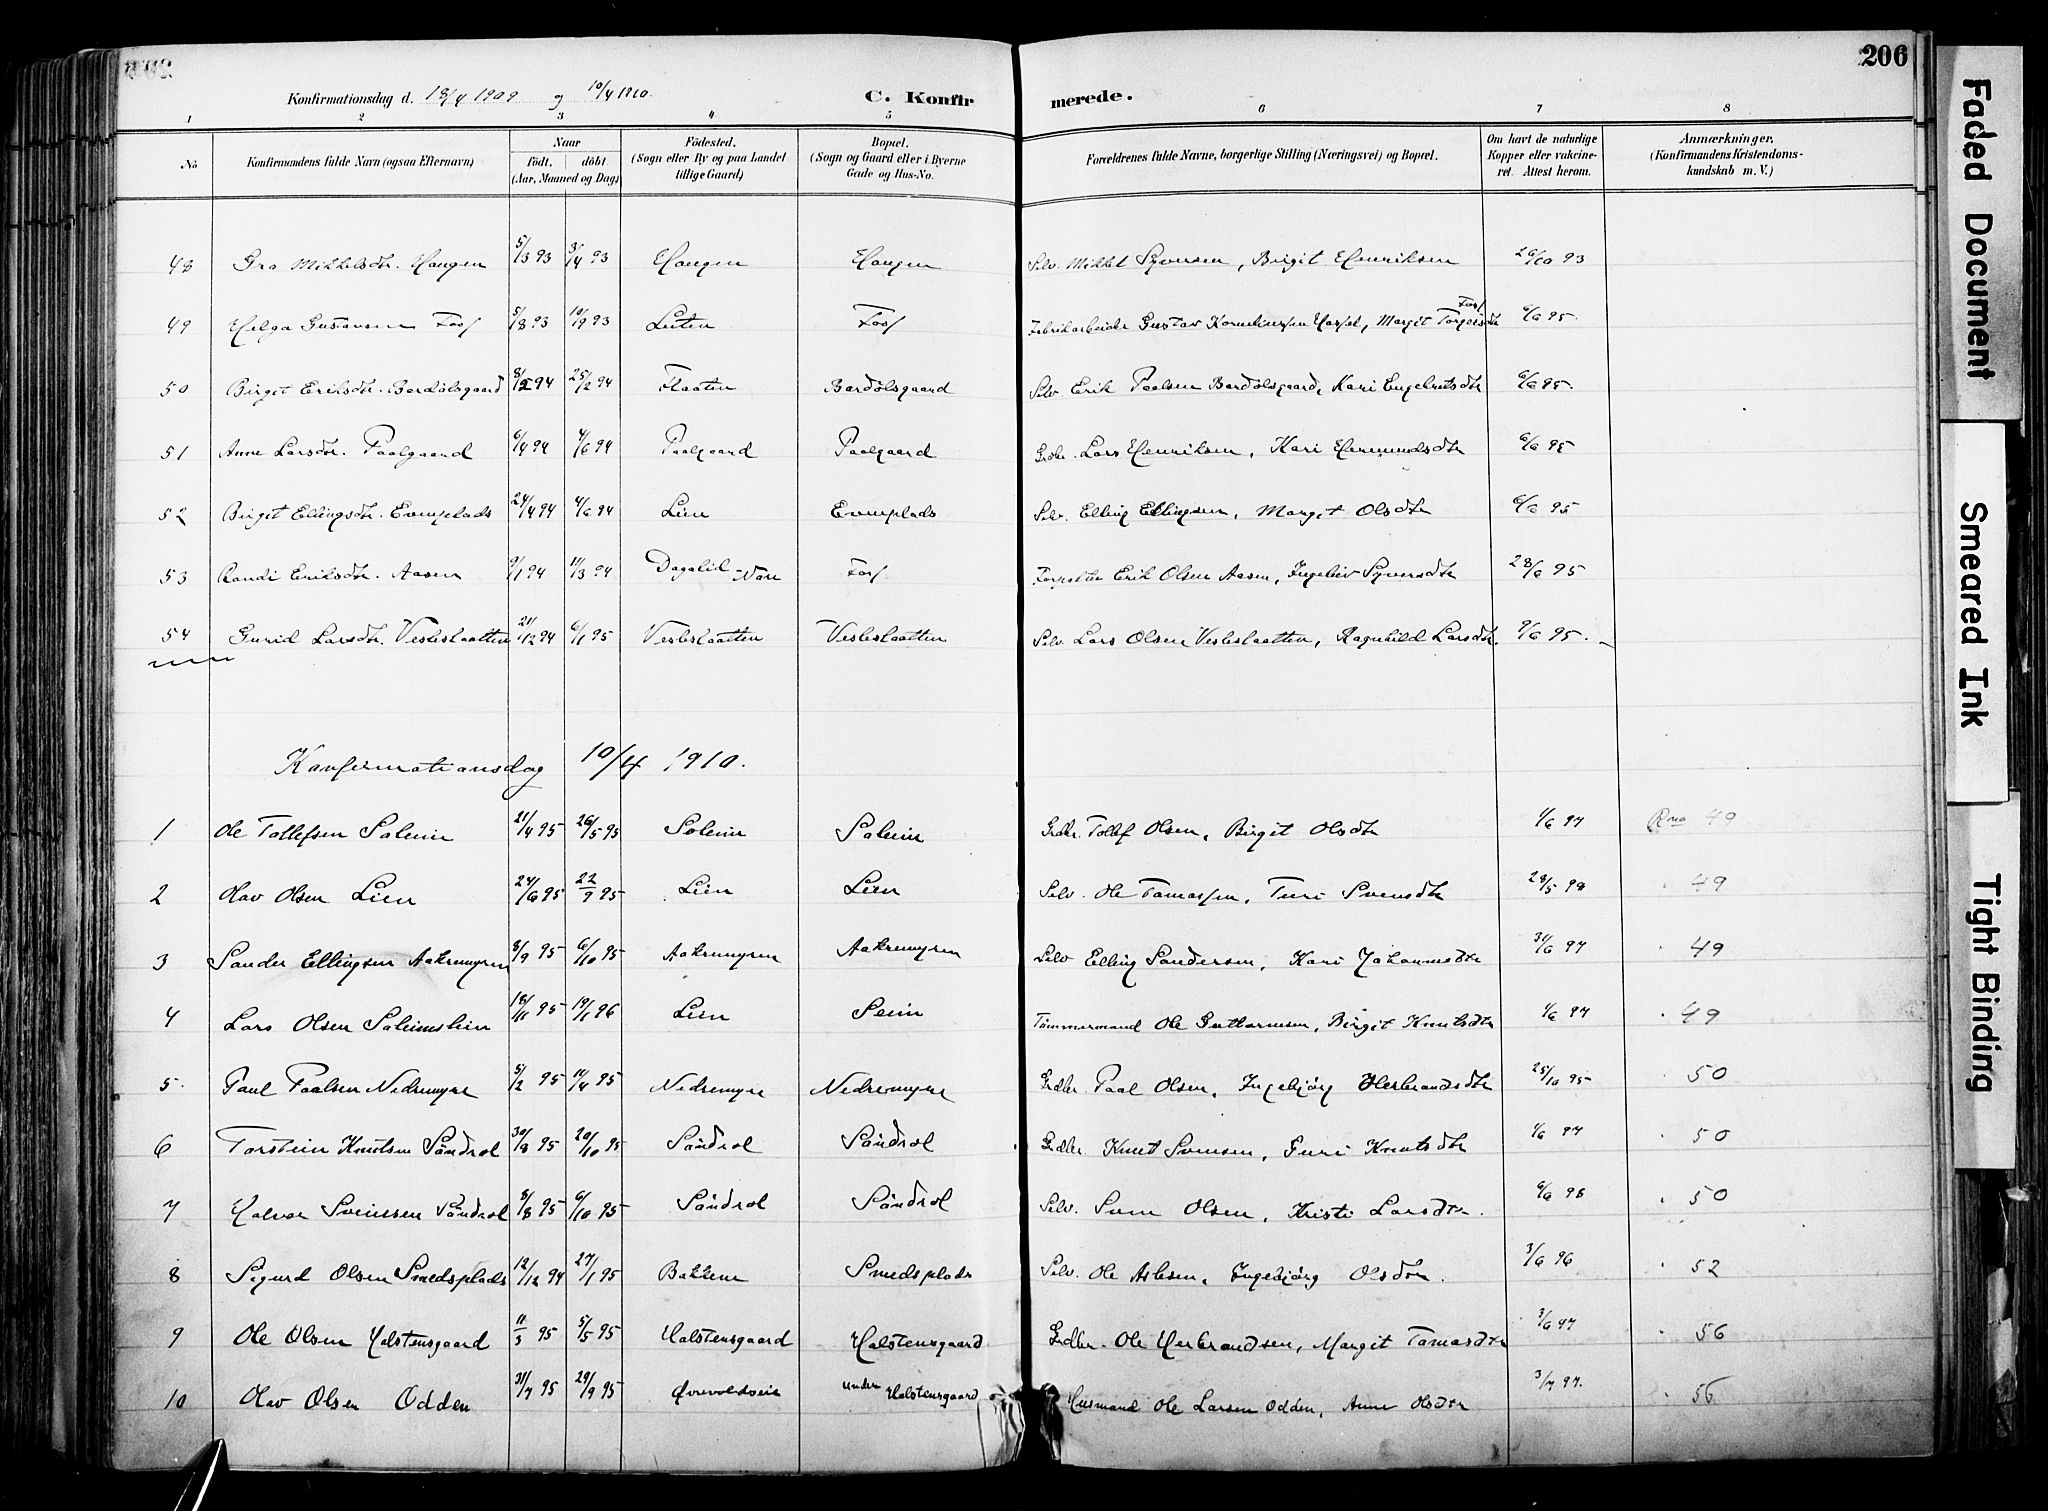 206
Konfirmationsdag d. 18/4 1909 og 10/4 1910.
C. Konfir merede.
1 2 3 4 5 6 7 8
No
Konfirmandens fulde Navn (ogsaa Efternavn)
Naar
födt. döbt.
(Aar, Maaned og Dag)
Födested.
(Sogn eller By og paa Landet
tillige Gaard)
Bopæl.
(Sogn og Gaard eller i Byerne
Gade og Hus-No.
Forældrenes fulde Navne, borgerlige Stilling (Næringsvei) og Bopæl.
Om havt de naturlige
Kopper eller vakcine-
ret. Attest herom.
Anmærkninger,
(Konfirmandens Kristendoms-
kundskab m. V.)
48 Gro Mikkelsdtr. Haugen 5/3 93 3/4 93 Haugen Haugen Selv. Mikkel Syversen, Birgit Henriksen 26/10 93
49 Helga Gustavsen Fosf 5/8 93 10/9 93 Leiten Fosf Fabrikarbeider Gustav Kornelinssen Harsel, Margit Torgeirsdtr Fosf 6/6 95.
50 Birgit Eriksdtr. Bardölsgaard 8/2 94 25/2 94 Flaaten Bardölsgaard Selv. Erik Paalsen Bardölsgaard, Kari Engebretsdtr 6/6 95.
51 Anne Larsdtr. Paalgaard 6/4 94 4/6 94 Paalgaard Paalgaard Grdbr. Lars Henriksen, Kari Hermundsdtr 6/6 95
52 Birgit Ellingsdtr. Evenplads 24/4 94 4/6 94 Lien Evenplads Selv. Elling Ellingsen, Margit Olsdtr 6/6 95
53 Randi Eriksdtr. Aasen 9/1 94 11/3 94 Dagalid - Nore Fosf Erik Olsen Aasen, Ingebor Syversdtr 28/6 95
54 Gunid Larsdtr. Vesleslaatten 21/12 94 6/1 95 Vesleslaatten Vesleslaatten Selv. Lars Olsen Vesleslaatten, Ragnhild Larsdtr. 9/6 95.
Konfirmationsdag 10/4 1910.
1 Ole Tollefsen Soleim 21/4 95 26/5 95 Soleim Soleim Grdbr. Tollef Olsen, Birgit Olsdtr 1/6 97 49
2 Olav Olsen Lien 24/6 95 22/9 95 Lien Lien Selv. Ole Tamassen, Turi Svensdtr 28/5 98 . 49
3 Sander Ellingsen Aakremyren 8/9 95 6/10 95 Aakremyren Aakremyren Selv Elling Sandersen, Kari Johannesdtr 97 . 49
4 Lars Olsen Soleimslien 18/11 95 19/1 96 Lien Seim Tömmermand Ole Guttormsen, Birgit Knutsdtr 1/6 97 . 49
5. Paul Paalsen Nedremyre 5/2 95 14/4 95 Nedremyre Nedremyre Grdbr. Paal Olsen, Ingebjörg Herbrandsdtr 25/10 95 . 50
6 Torstein Knutsen Söndrol 30/8 95 20/10 95 Söndrol Söndrol Grdbr. Knut Svensen, Guri Knutsdtr 1/6 97 . 50
7 Halvor Svenssen Söndrol 8/8 95 6/10 95 Söndrol Söndrol Selv. Sven Olsen, Kristi Larsdtr. 6/6 98 . 50
8 Sigurd Olsen Smedsplads 12/12 94 27/1 95 Bakken Smedsplads Selv. Ole Aslesen, Ingebjörg Olsdtr. 3/6 96 . 52
9 Ole Olsen Halstensgaard 11/3 95 5/5 95 Halstensgaard Halstensgaard Grdbr. Ole Herbrandsen, Margit Tamasdtr 3/6 97 . 56
10 Olav Olsen Odden 31/7 95 29/9 95 Övrevoldseie under Halstensgaard Husmand Ole Larsen Odden, Anne Olsdtr 3/7 97. . 56
Faded Document
Smeared Ink
Tight Binding